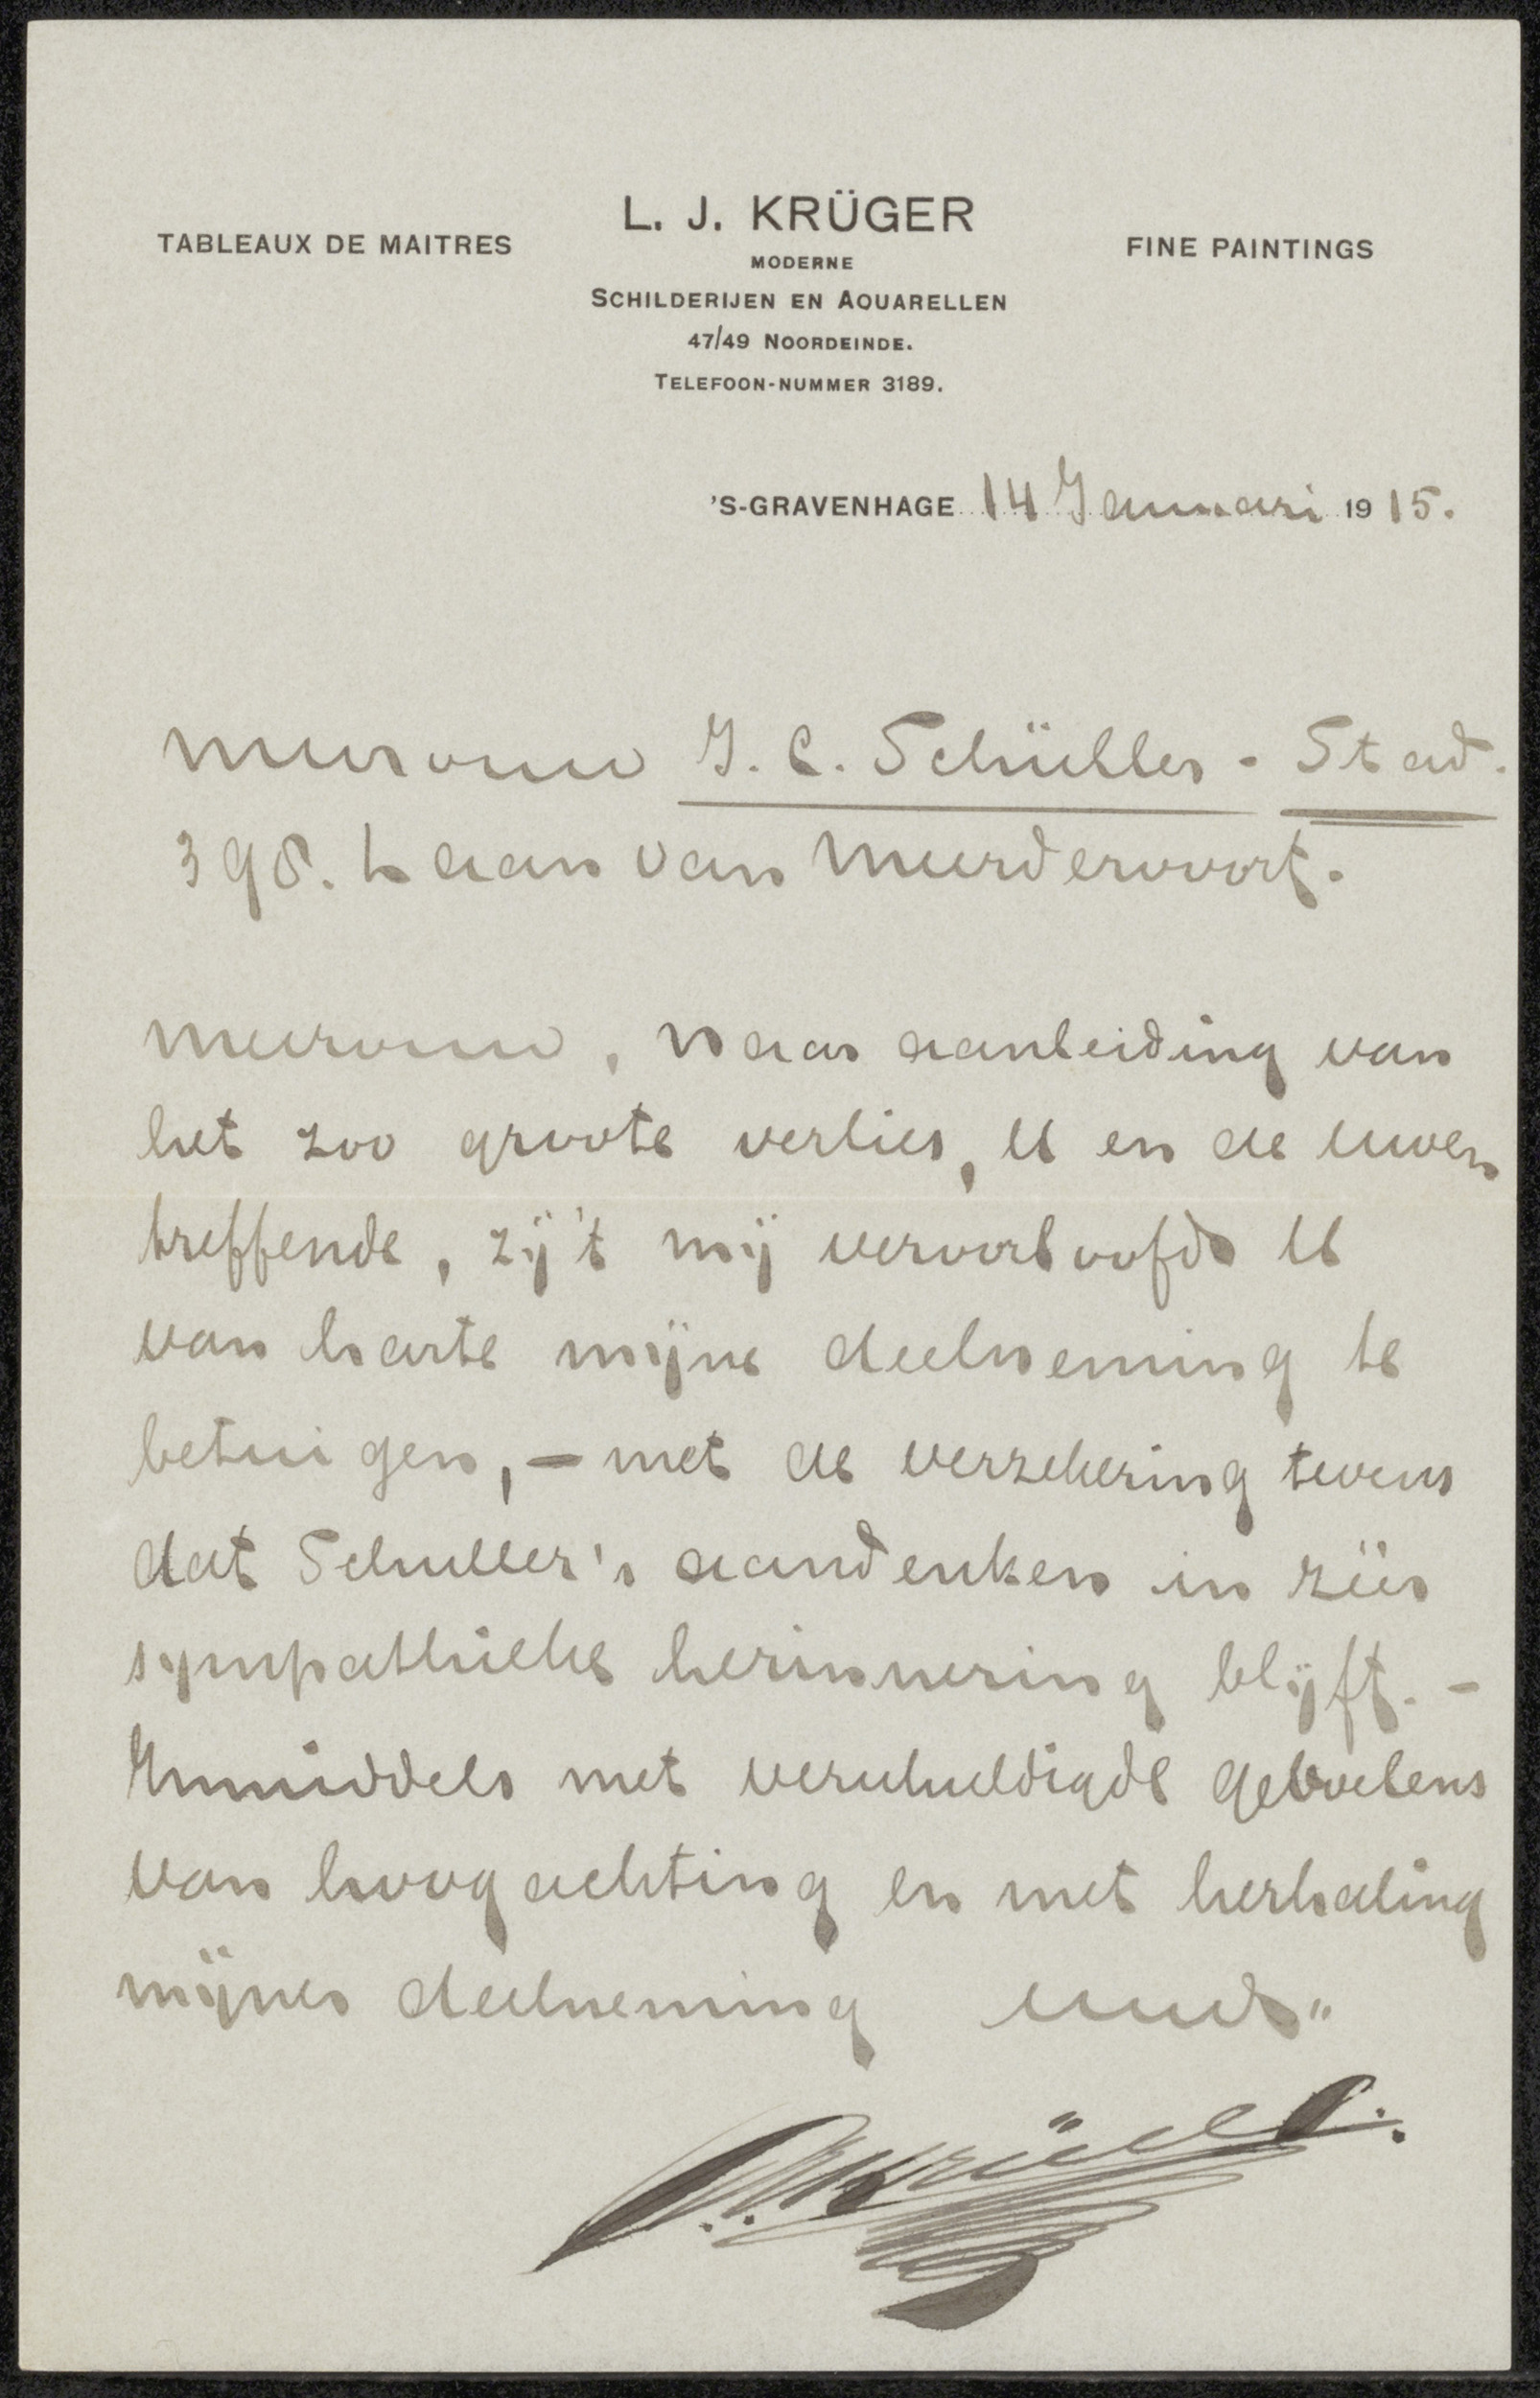 L. J. KRÜGER
TABLEAUX DE MAITRES
FINE PAINTINGS
MODERNE
SCHILDERIJEN EN AQUARELLEN
47/49 NOORDEINDE.
TELEFOON-NUMMER 3189.
'S-GRAVENHAGE 14 Januari 1915.
Mevrouw J. C. Schüller - Stad.
398. Laan van Meerdervoort.
Mevrouw, Naar aanleiding van
het zoo groote verlies, U en de uwen
treffende, zÿ 't mÿ veroorloofd U
van harte mÿne deelneming te
betuigen, - met de verzekering tevens
dat Schuller's aandenken in zéér
sympathieke herinnering blÿft. -
Inmiddels met verschuldigde gevoelens
van hoogachting en met herhaling
mÿner deelneming
Krüger.